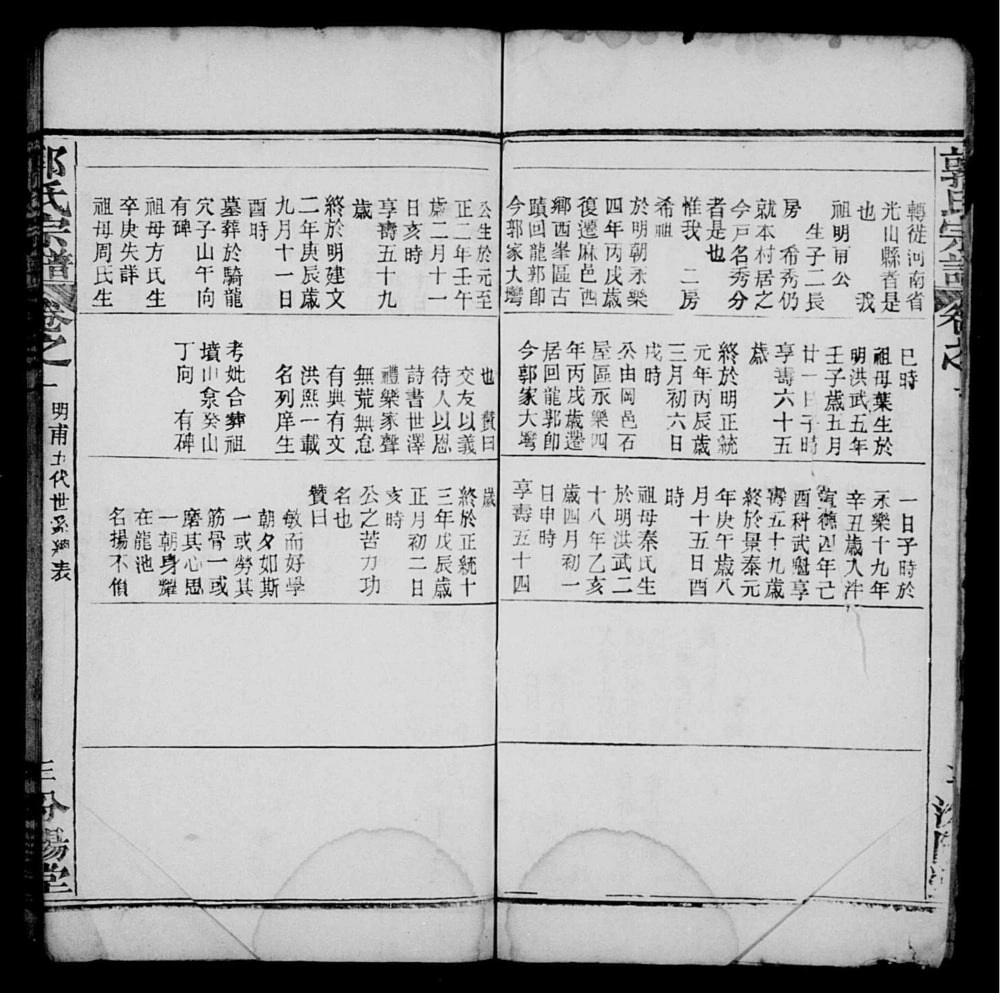 轉徙河南省
光山縣者是
也　我
祖明甫公
生子二長
房　希秀仍
就本村居之
今戶名秀分
者是也
惟我　二房
希祖
於明朝永樂
四年丙戌歲
復遷麻邑西
鄉西峯區古
蹟回龍郭卽
今郭家大塆
巳時
祖母葉生於
明洪武五年
壬子歲五月
廿一日子時
享壽六十五
歲
終於明正統
元年丙辰歲
三月初六日
戌時
公由岡邑石
屋區永樂四
年丙戌歲遷
居回龍郭卽
今郭家大塆
一日子時於
永樂十九年
辛丑歲入泮
宣德四年己
酉科武魁享
壽五十九歲
終於景泰元
年庚午歲八
月十五日酉
時
祖母秦氏生
於明洪武二
十八年乙亥
歲四月初一
日申時
享壽五十四
公生於元至
正二年壬午
歲二月十一
日亥時
享壽五十九
歲
終於明建文
二年庚辰歲
九月十一日
酉時
墓葬於騎龍
穴子山午向
有碑
祖母方氏生
卒庚失詳
祖母周氏生
也　贊曰
交友以義
待人以恩
詩書世澤
禮樂家聲
無荒無怠
有典有文
洪熙一載
名列庠生
考妣合葬祖
墳山癸山
丁向　有碑
歲
終於正統十
三年戊辰歲
正月初二日
亥時
公之苦力功
名也
贊曰
敏而好學
朝夕如斯
一或勞其
筋骨一或
磨其心思
一朝身耀
在龍池
名揚不傾
郭氏宗譜
卷之一
明甫五代世系總表
三
汾陽堂